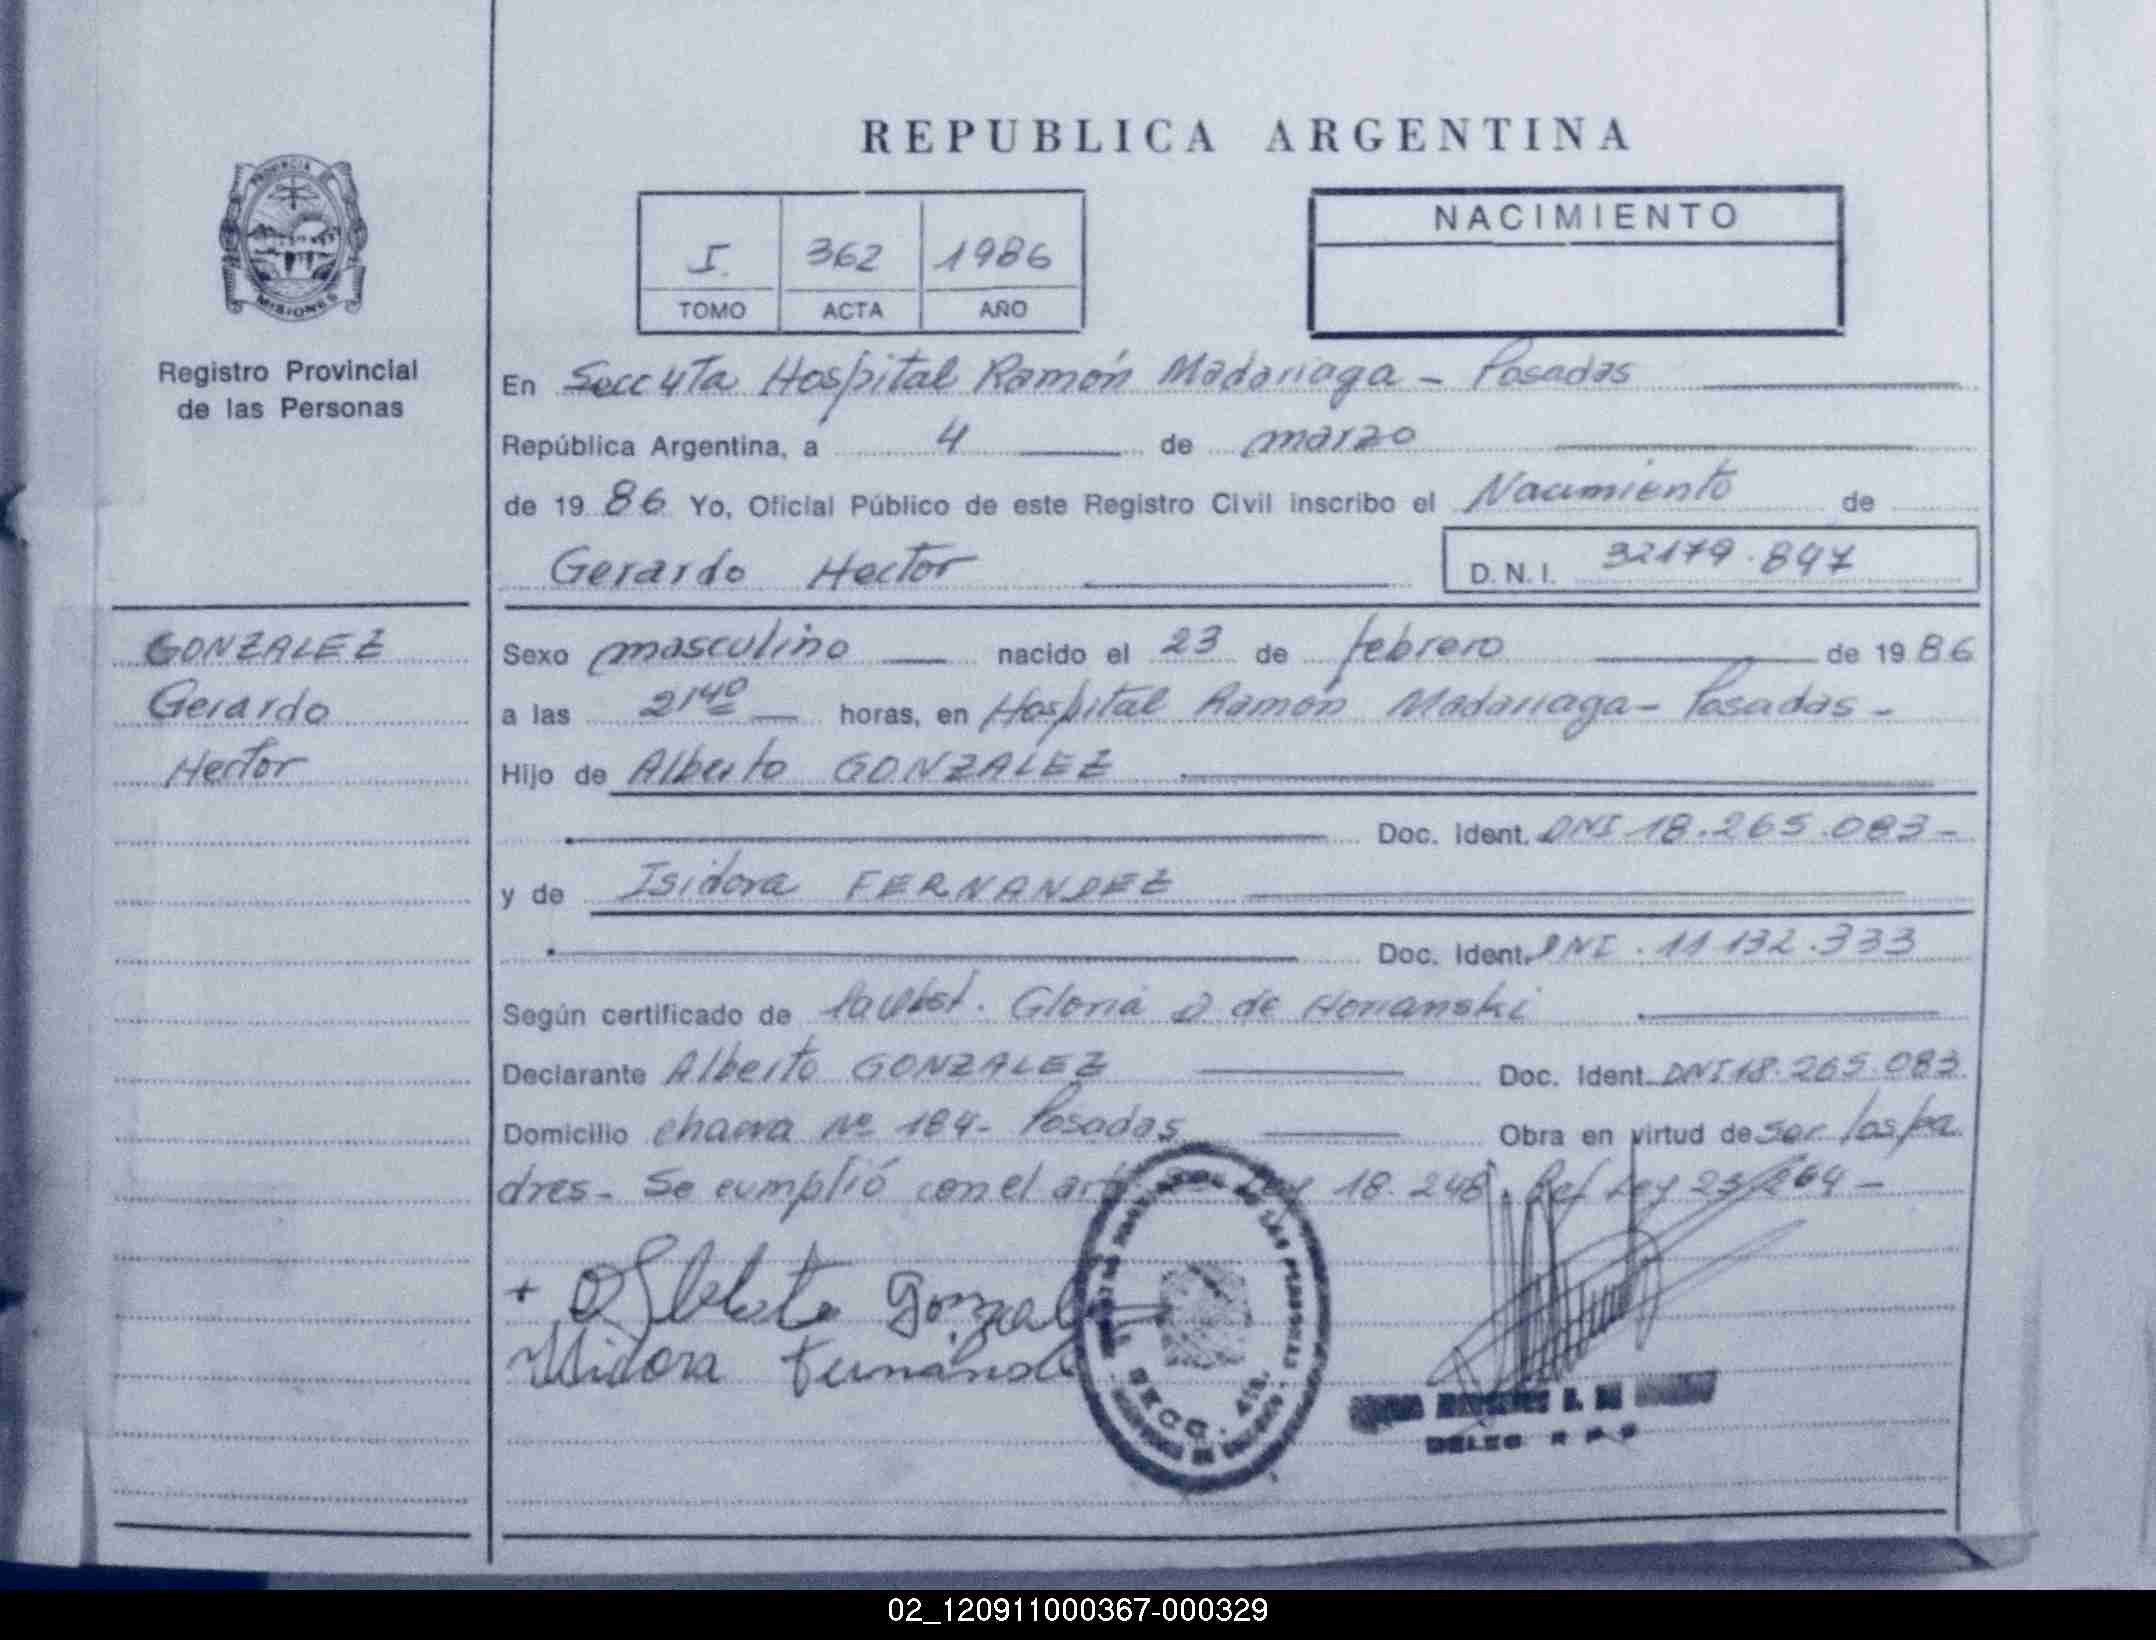 REPUBLICA ARGENTINA
PROVINCIA
MISIONES
Registro Provincial
de las Personas
I. 362 1986
TOMO ACTA AÑO
NACIMIENTO
En Secc 4ta Hospital Ramón Madariaga - Posadas
República Argentina, a 4 de marzo
de 19 86 Yo, Oficial Público de este Registro Civil inscribo el Nacimiento de
Gerardo Hector D.N.I. 32179.847
GONZALEZ
Gerardo
Hector
Sexo masculino nacido el 23 de febrero de 19 86
a las 21 40 horas, en Hospital Ramón Madariaga - Posadas -
Hijo de Alberto GONZALEZ
Doc. Ident. DNI 18.265.083 -
y de Isidora FERNANDEZ
Doc. Ident. DNI . 11 132.333
Según certificado de la Obst. Gloria D de
Declarante Alberto GONZALEZ Doc. Ident. DNI 18.265.083
Domicilio chacra Nº 184 - Posadas Obra en virtud de ser los pa
dres - Se cumplió con el art 18.248 Ref Ley 23/264 -
+ Alberto Gonzal
Isidora Fernánd
SECC. 4ta.
DELEG R P P
02_120911000367-000329